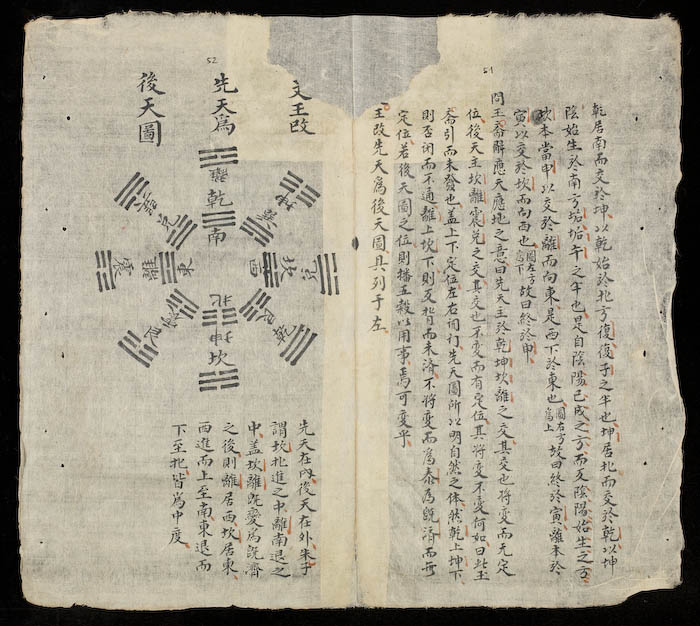 51
乾居南而交於坤以乾始於北方復復子之半也坤居北而交於乾以坤
陰始生於南方垢垢午之半也是自陰陽已成之方而反陰陽始生之方
坎本當申以交於離而向東是西下於東也圖左方爲上故曰終於寅離本於
寅以交於坎而向西也圖左方爲下故曰終於申
問王齋解應天應地之意曰先天主於乾坤坎離之交其交也將變而无定
位後天主坎離震兌之交其交也不變而有定位其將變不變何如曰此玉
齋引而未發也盖上下定位左右闭门先天圖所以明自然之体然乾上坤下
則否闭而不通離上坎下則交背而未済不將變而爲泰爲既済而
定位若後天圖之位則播五穀以用事焉可變乎
王改先天爲後天圖具列于左
52
文王改
先天爲
後天圖
乾
南
坎
西
東
離
震
北
坤
坎
艮
兌
巽
先天在內後天在外朱子
謂坎北進之中離南退之
中盖坎離既變爲既齊
之後則離居西坎居東
西進而上至南東退而
下至北皆爲中度